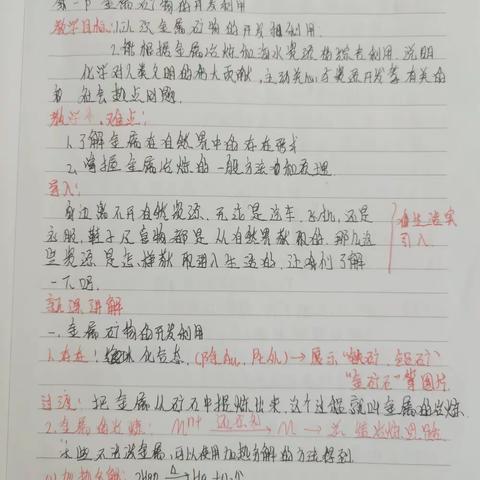 第一节 金属矿物的开发利用
教学目标:1.认识金属矿物的开发和利用.
2.能根据金属冶炼和海水资源的综合利用,说明
化学对人类文明的伟大贡献,主动关心才资源开发等有关的
社会热点问题.
教学 难点:
1.了解金属在自然界中的存在形式
2.掌握金属冶炼的一般方法和原理.
导入:
身边离不开自然资源.无论是汽车.飞机,还是
衣服,鞋子及食物都是从自然界获取的,那么这
些资源是怎样获取进入生活的,让我们了解
一下吧.
由生活实
引入
新课讲解
一.金属矿物的开发利用
1.存在: 化合态. (除Au、Pt外)→展示"铁矿、铝矿"
"金矿石"等图片
过渡:把金属从矿石中提炼出来,这个过程就叫金属的冶炼.
2.金属的冶炼: Mⁿ⁺ 还原剂→ M →
一些不活泼金属,可以使用加热分解的方法得到.